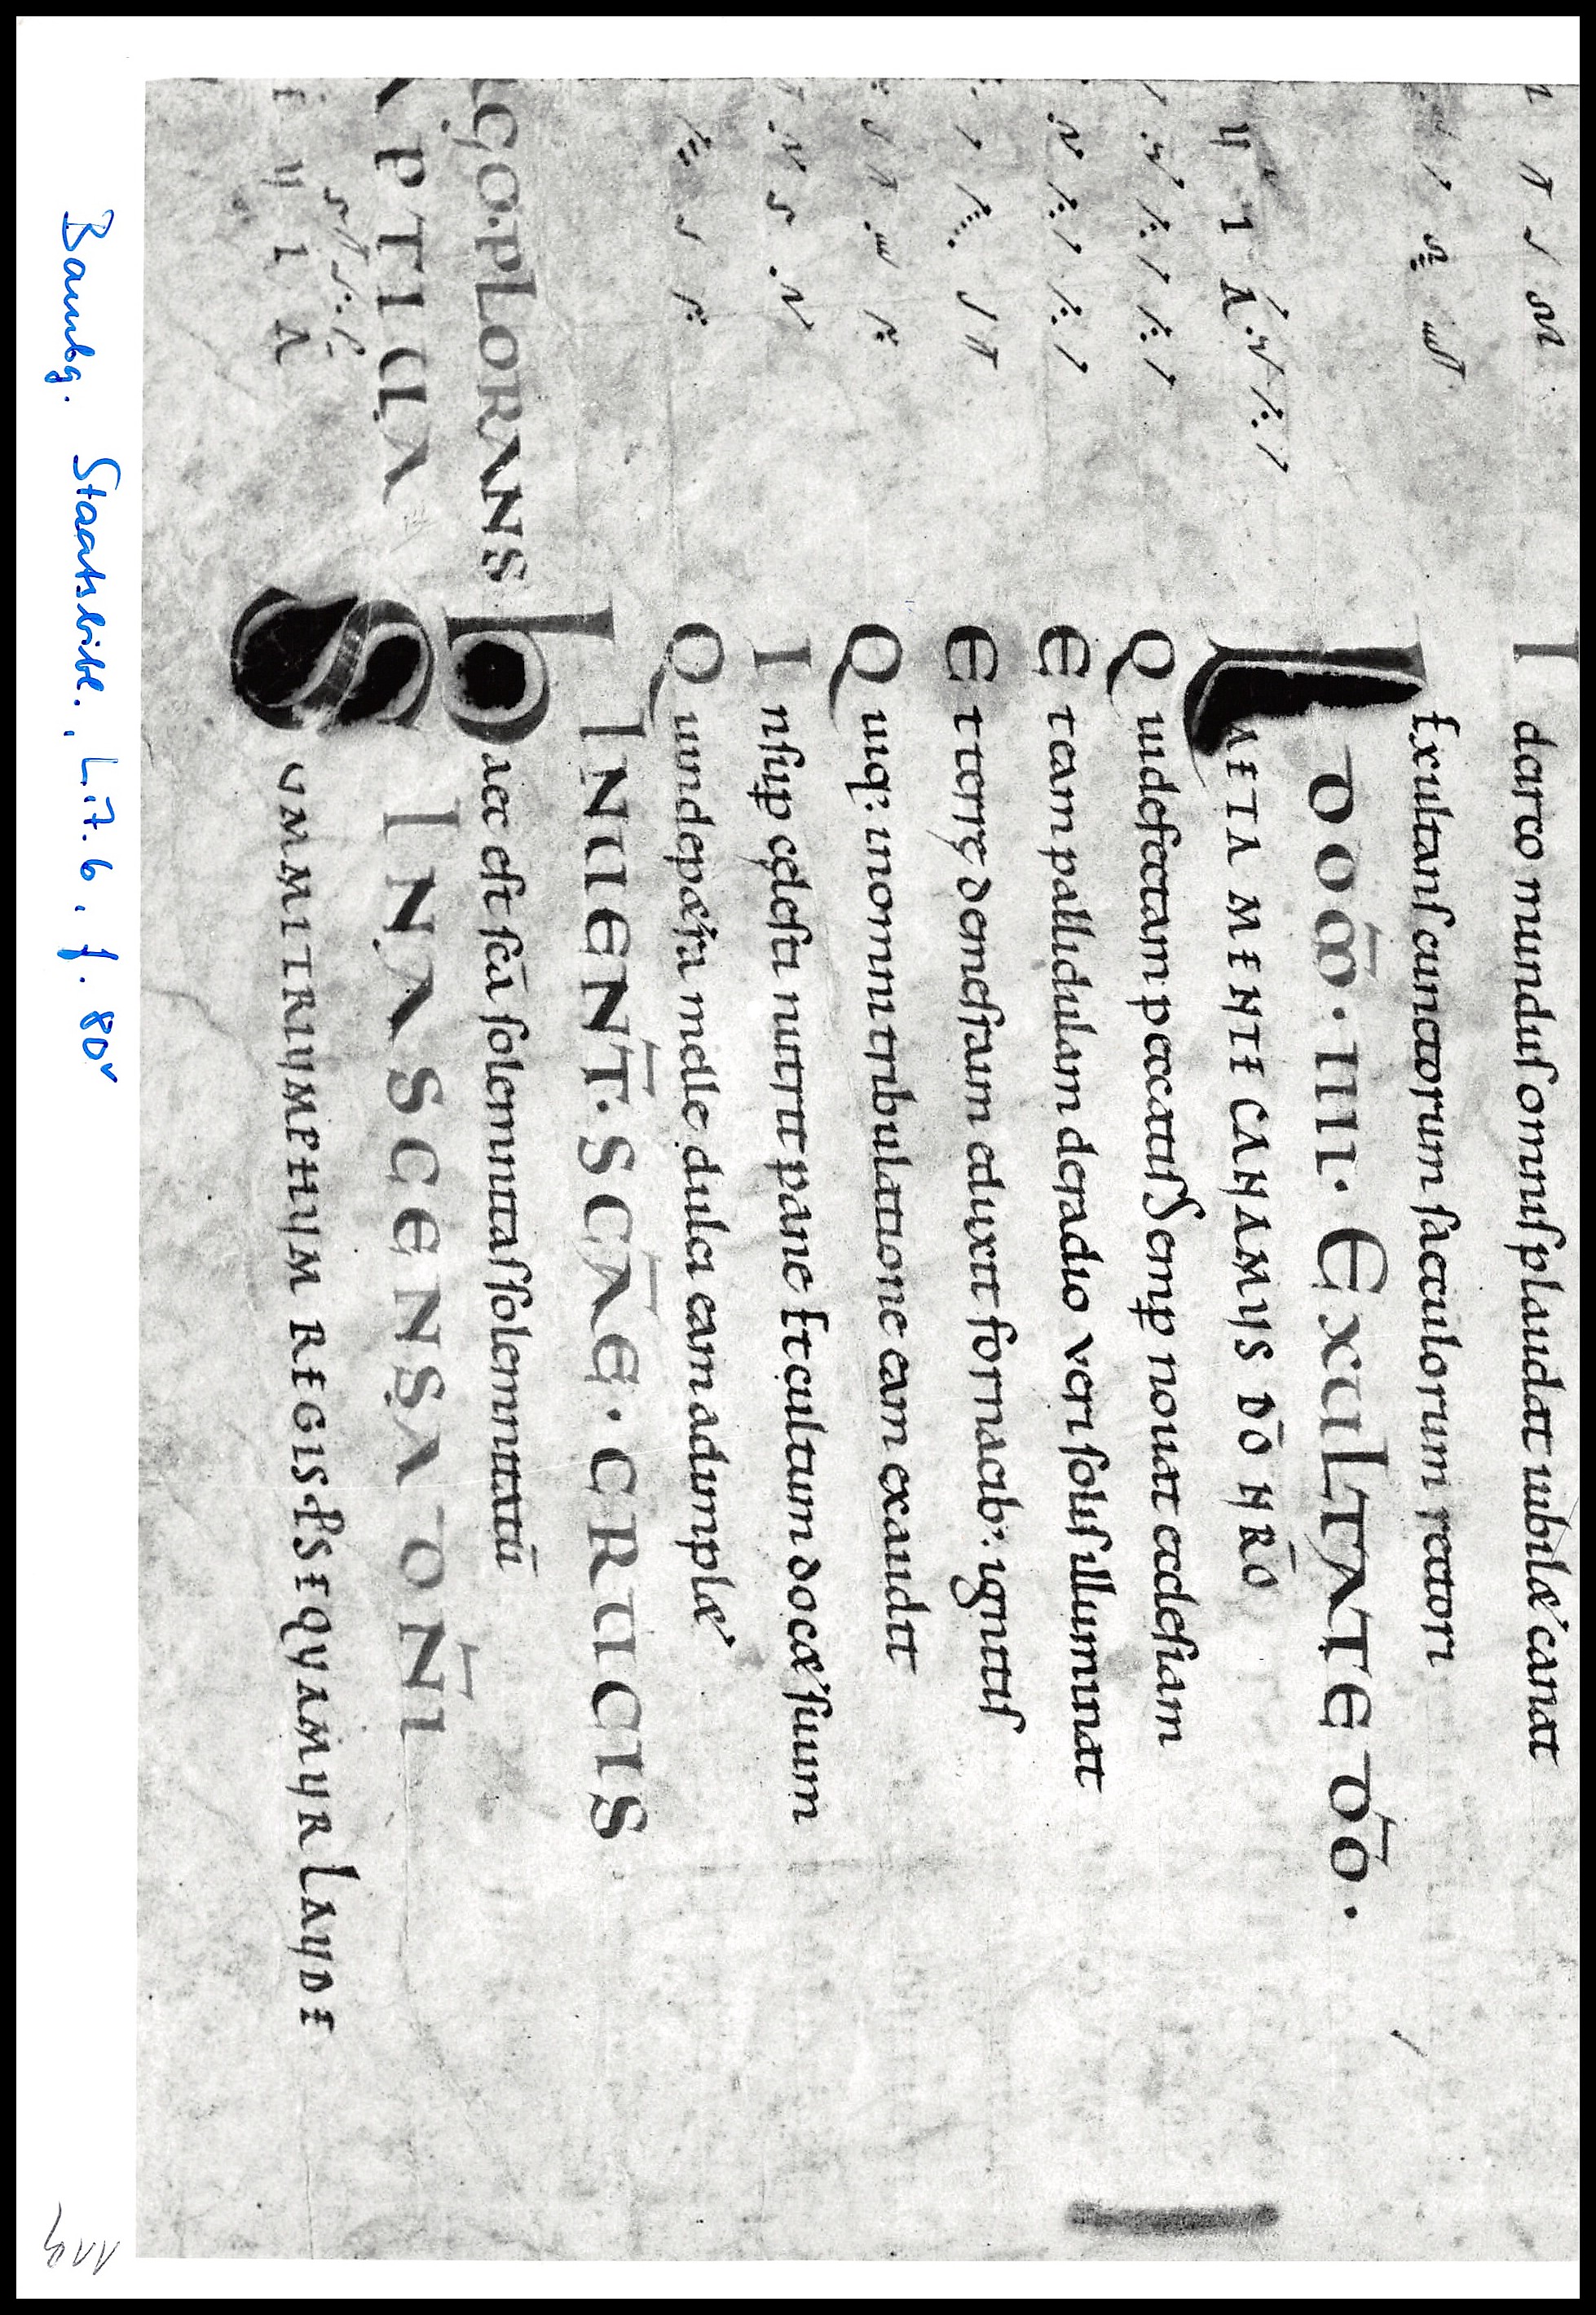 Idcirco mundus omnis plaudat iubilet canat
Exultans cunctorum saeculorum rectori
DOM̄·IIII· EXULTATE DŌ·
LAETA MENTE CANAMUS DŌ NRŌ
Qui defectam peccatis Semp̄ nouat ecclesiam
Et eam pallidulam de radio veri solis illuminat
Et terrę de mesraim eduxit fornacib; ignitis
Quiq; in omni tribulatione eam exaudit
Insup̄ cęlesti nutrit pane Et cultum docet suum
Quin de petra melle dulci eam adimplet
IN INUENT̄· SCĀE· CRUCIS
GO·PLORANS
Haec est scā solemnitas solemnitatū
APTIUA
IN ASCENSA DN̄I
SUMMI TRIUMPHUM REGIS P̄SEQUAMUR LAUDE
Bambg. Staatsbibl., Lit. 6. f. 80v